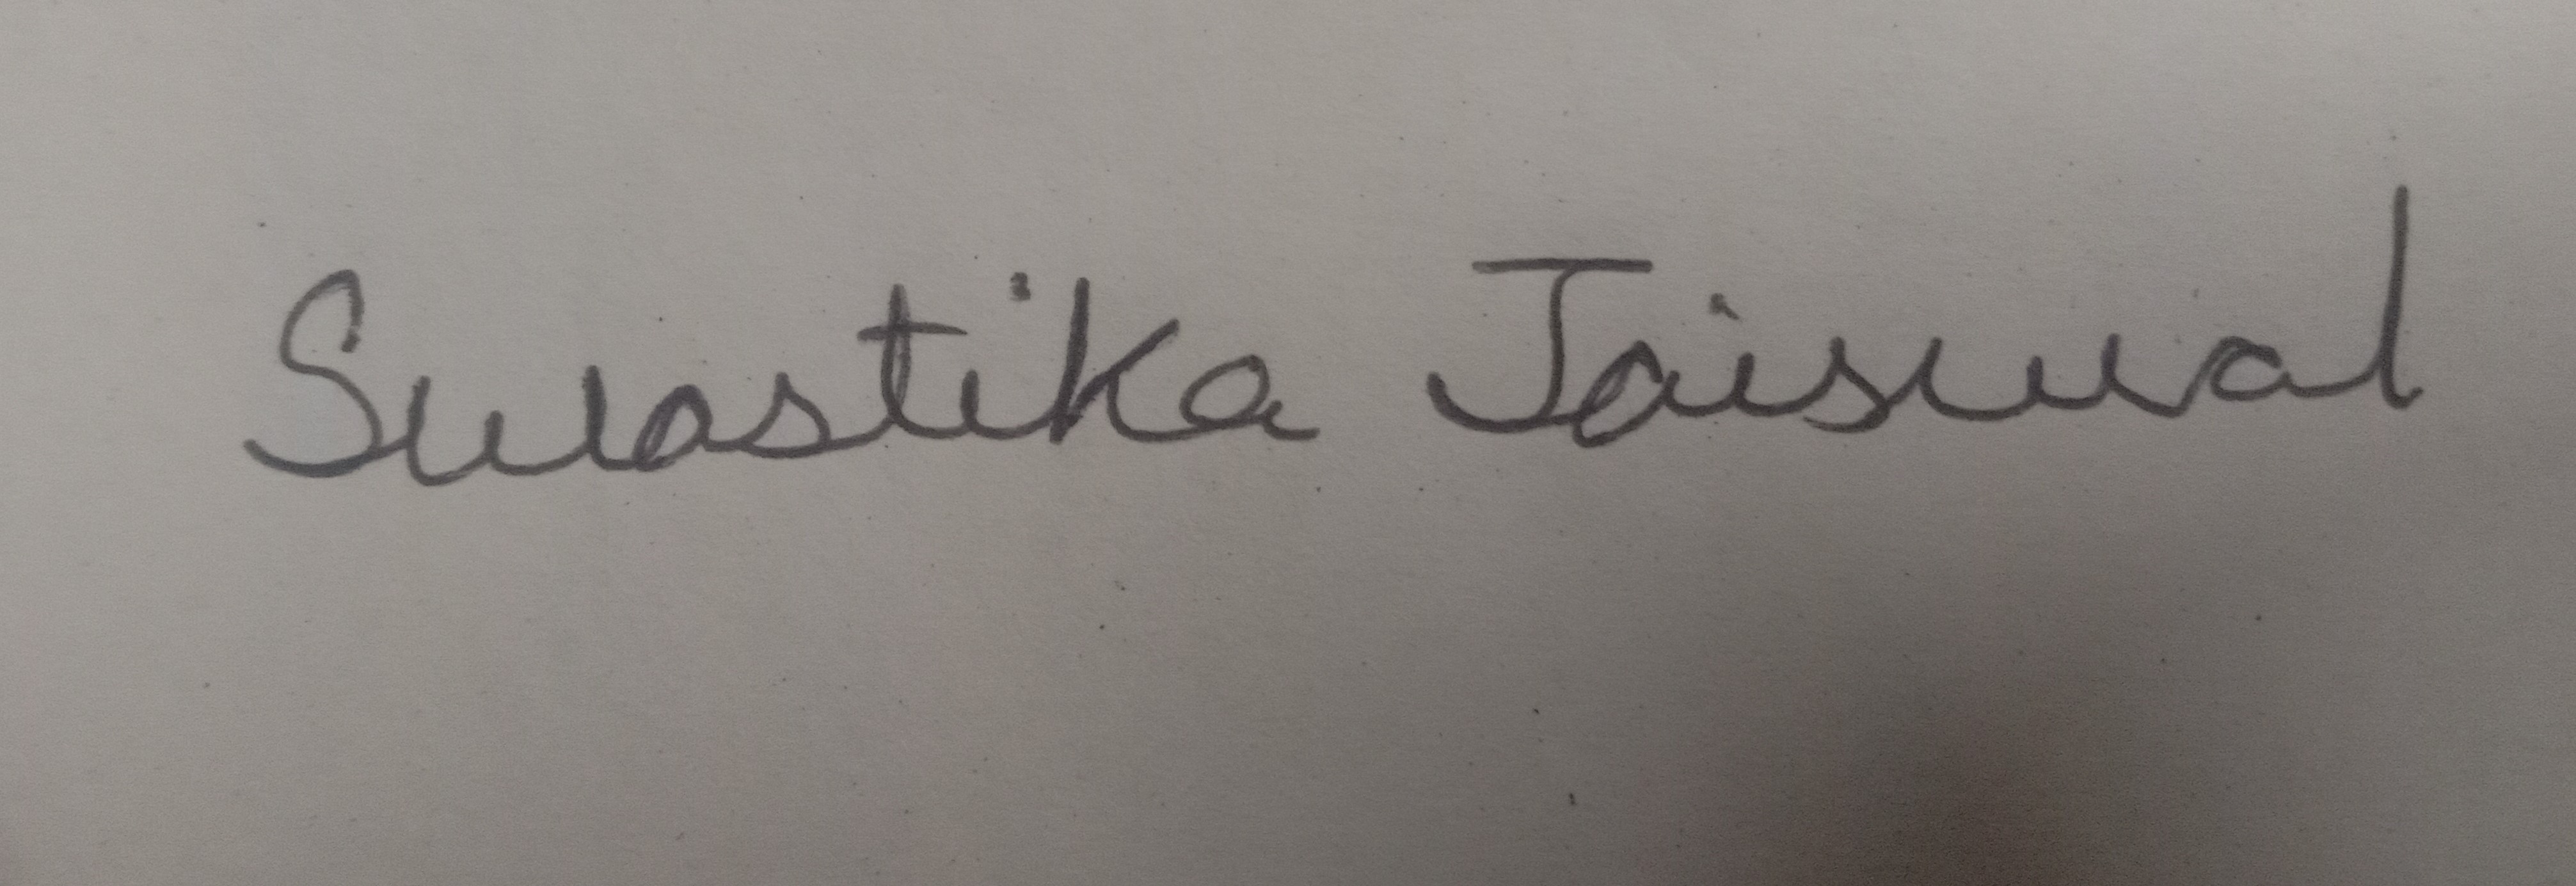 Swastika Jaiswal